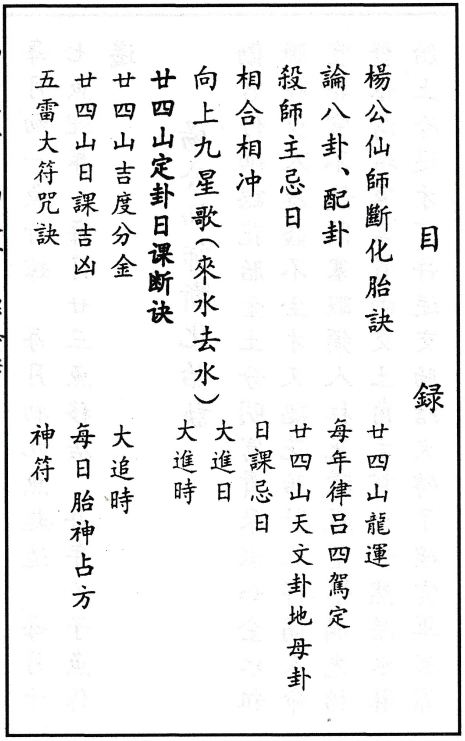 目録
楊公仙師斷化胎訣 廿四山龍運
論八卦、配卦 每年律呂四駕定
殺師主忌日 廿四山天文卦地母卦
相合相冲 日課忌日
向上九星歌(來水去水) 大進日
廿四山定卦日课断诀 大進時
廿四山吉度分金 大追時
廿四山日課吉凶 每日胎神占方
五雷大符咒訣 神符